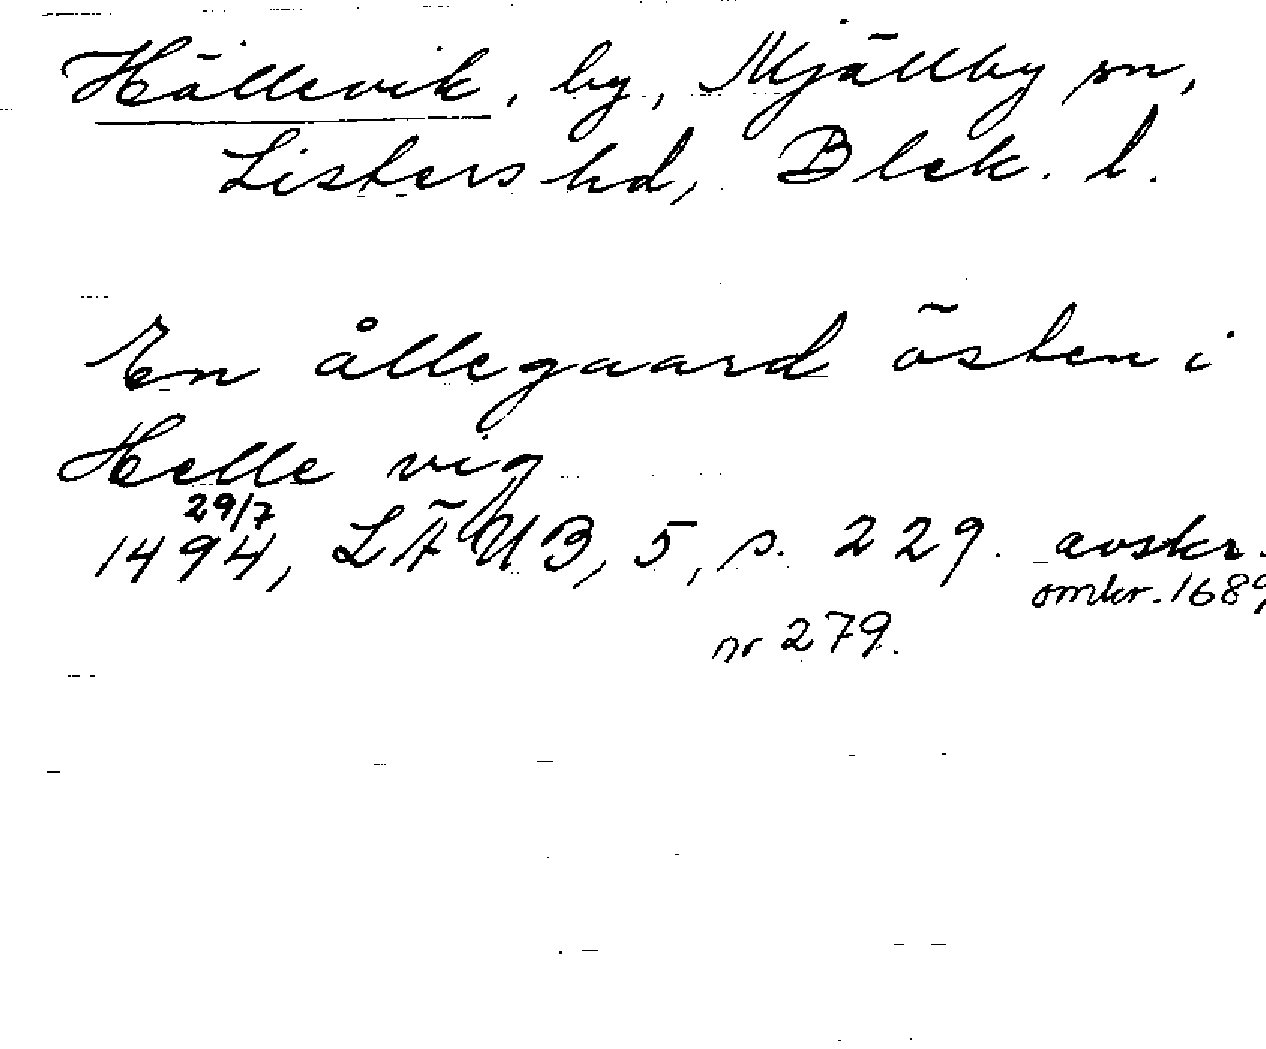 Hällevik, by, Mjällby sn,
Listers hd, Blek. l.
En ållegaard östen i
Helle vig
29/7
1494, LÄUB, 5, s. 229. avskr.
omkr. 1689
nr 279.